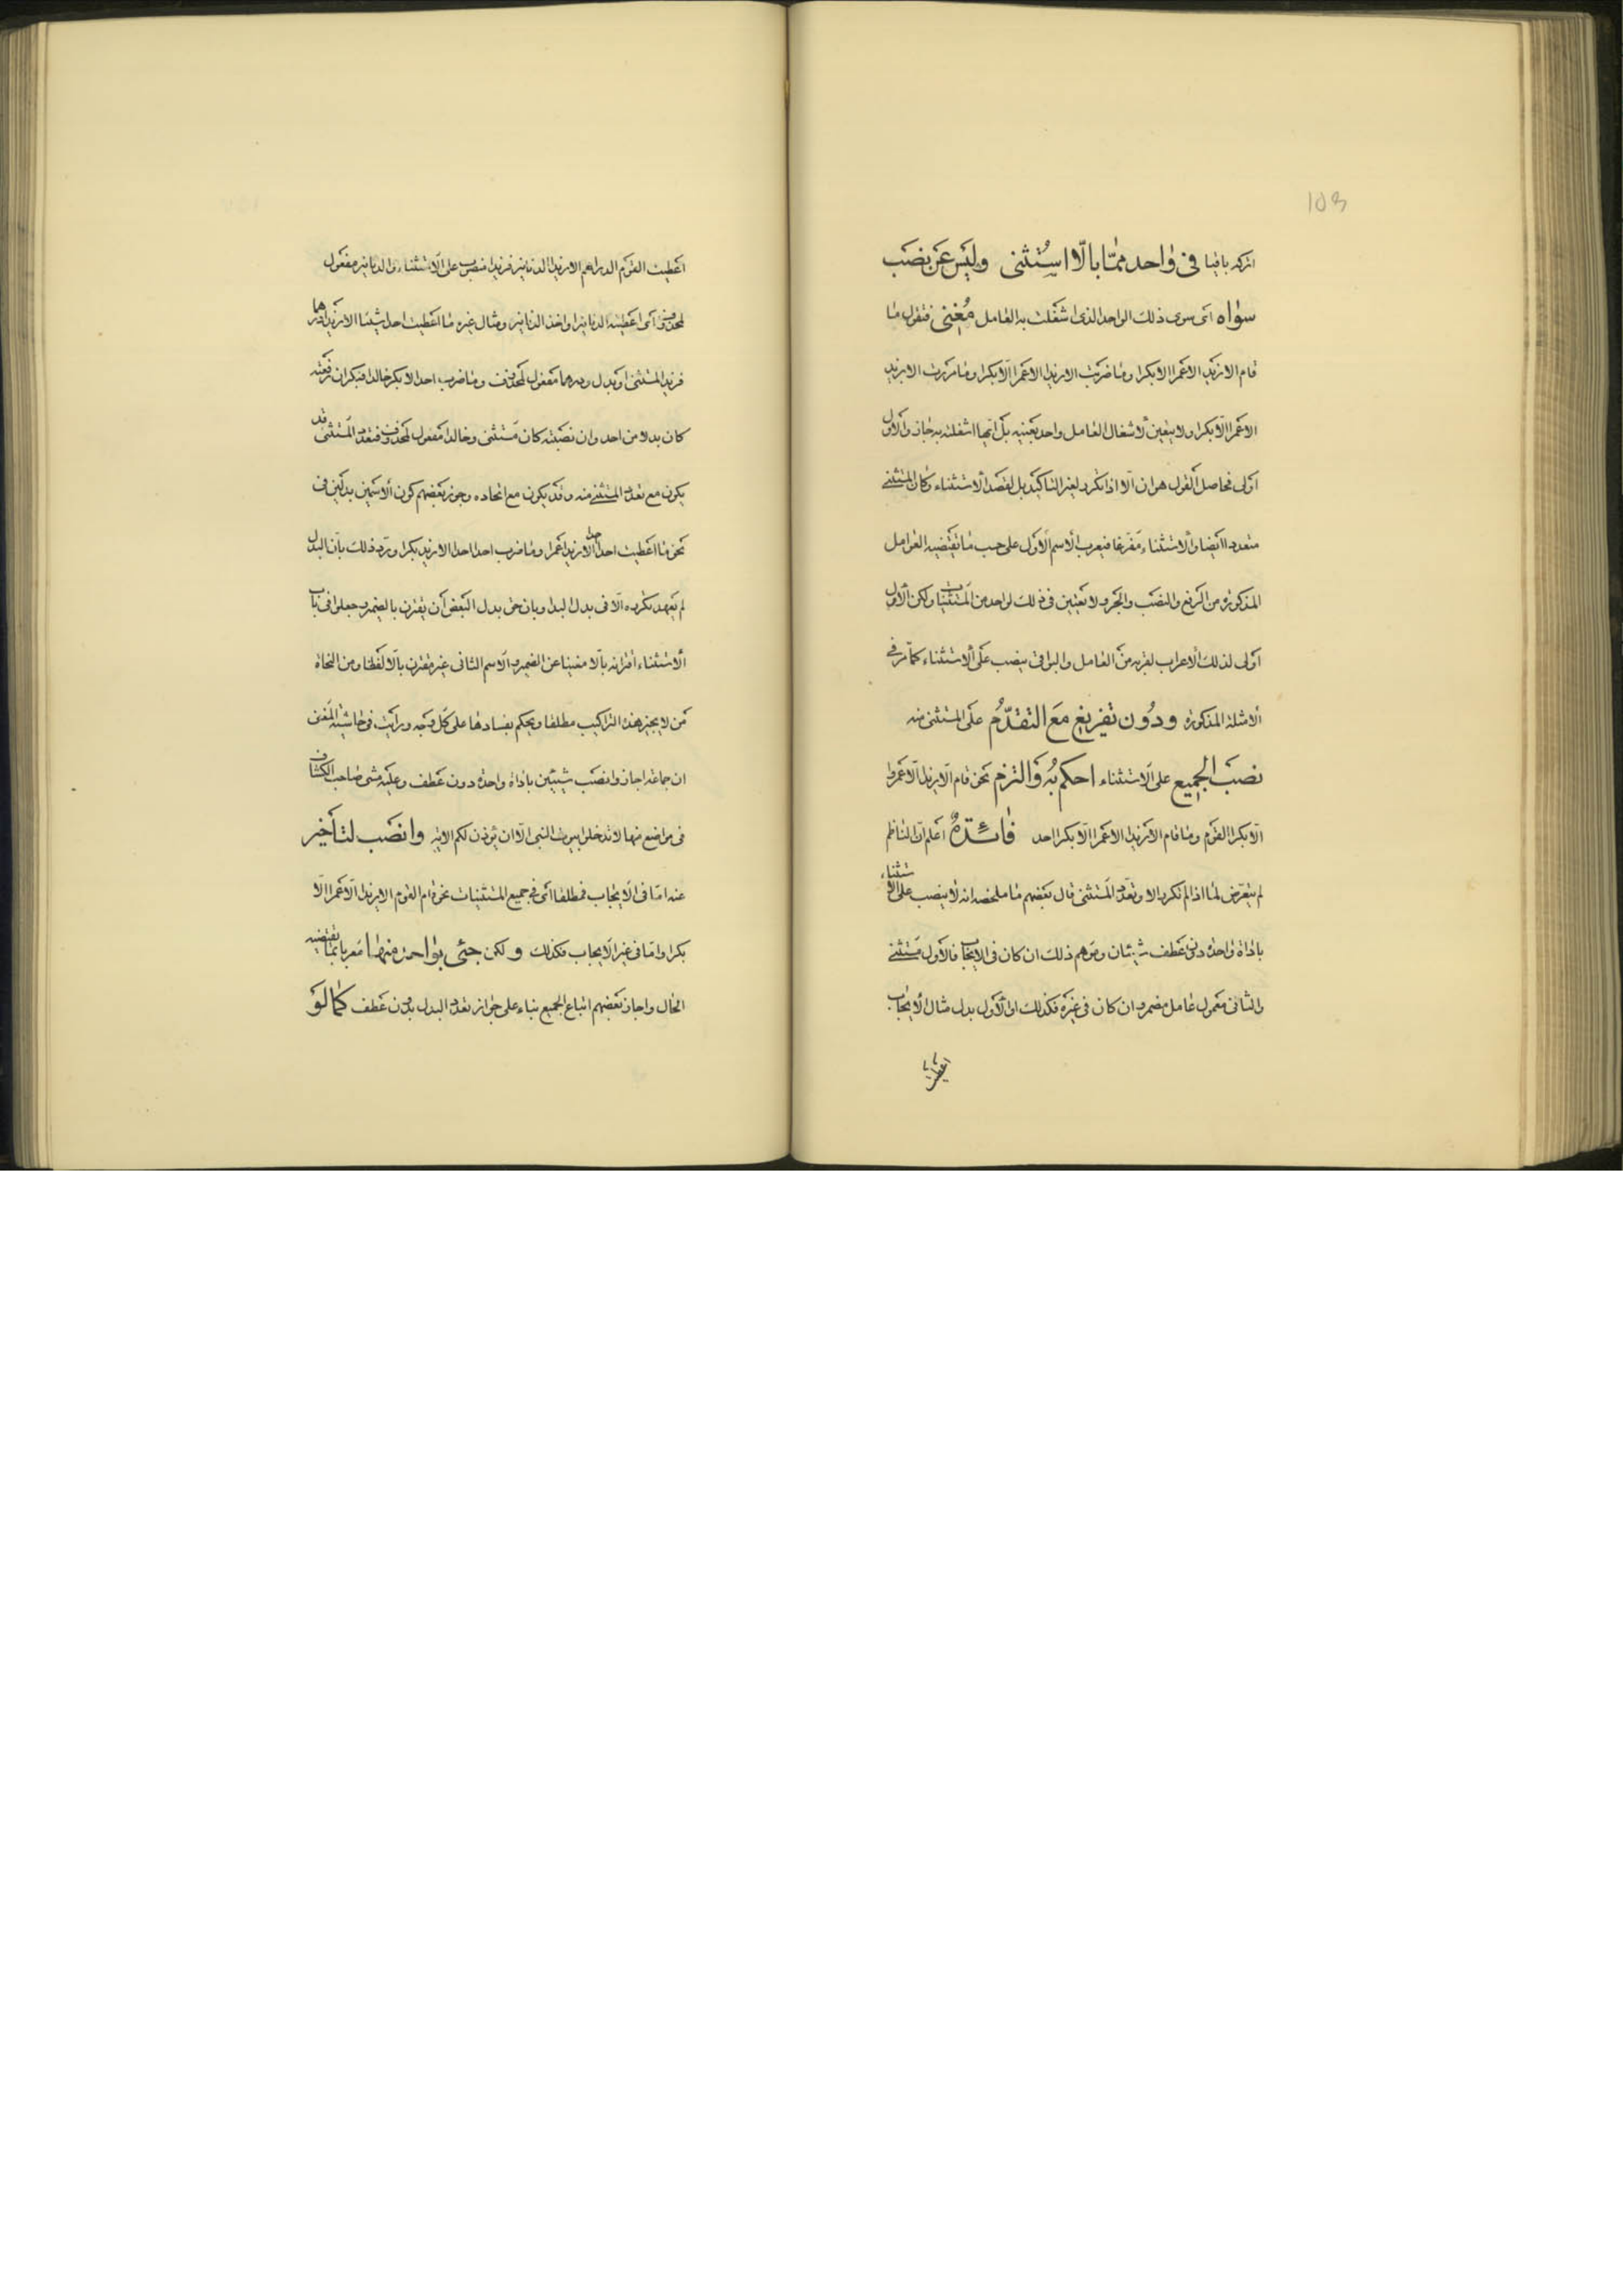 103
اتركه باقيا في واحد ممّا بالّا استُثني وليس عن نصب
سواه اى سوى ذلك الواحد الذى اشغلت به العامل مُغنى فتقول ما
قام الا زيد الا عمرا الا بكرا وما ضربت الا زيدا الا عمرا الا بكرا وما مررت الا بزيد
الا عمرا الا بكرا ولا يتعين لاشغال العامل واحد بعينه بل ايها اشغلته به جاز والاول
اولى فحاصل القول هو ان الا اذا تكرر لغير التاكيد بل لقصد الاستثناء وكان المستثنى
متعددا ايضا والاستثناء مفرغا فيعرب الاسم الاول على حسب ما تقتضيه العوامل
المذكورة من الرفع والنصب والجر ولا تعيين في ذلك لواحد من المستثنيات ولكن الاول
اولى لذلك الاعراب لقربه من العامل والبواقى ينصب على الاستثناء كما مر في
الامثلة المذكورة ودُون تفريغ مَع التقدّمُ على المستثنى منه
نصبَ الجميع على الاستثناء احكم بُه وَالتزم نحو قام الا زيدا الا عمروا
الا بكرا القوم وما قام الا زيدا الا عمرا الا بكرا احد فائدةٌ اعلم ان الناظم
لم يتعرض لما اذا لم تكرر الا وتعدد المستثنى قال بعضهم ما ملخصه انه لا ينصب على الاستثناء
باداة واحدة دون عطف شيئان وموهم ذلك ان كان في الايجاب فالاول مستثنى
والثانى معمول عامل مضمر وان كان في غيره فكذلك او الاول بدل مثال الايجاب
اعطيت
اعطيت القوم الدراهم الا زيدا الدنانير فزيدا منصوب على الاستثناء والدنانير مفعول
لمحذوف اى اعطيته الدنانير او اخذ الدنانير ومثال غيره ما اعطيت احدا شيئا الا زيدا درهما
فزيد المستثنى او بدل ودرهما مفعول لمحذوف وما ضرب احد الا بكر خالدا فبكر ان رفعته
كان بدلا من احد وان نصبته كان مستثنى وخالدا مفعول لمحذوف فتعدد المستثنى قد
يكون مع تعدد المستثنى منه وقد يكون مع اتحاده وجوز بعضهم كون الاسمين بدلين في
نحو ما اعطيت احدا احدا الا زيدا عمرا وما ضرب احد احدا الا زيد بكرا ورد ذلك بان البدل
لم يعهد تكرره الا في بدل البدا وبان حق بدل البعض ان يقترن بالضمير وجعلوا في باب
الاستثناء اقترانه بالا مغنيا عن الضمير والاسم الثانى غير مقترن بالا لفظا ومن النحاة
من لا يجيز هذه التراكيب مطلقا ويحكم بفسادها على كل وجه ورايت في حاشية المغنى
ان جماعة اجازوا نصب شيئين باداة واحدة دون عطف وعليه مشى صاحب الكشاف
في مواضع منها لا تدخلوا بيوت النبى الا ان يؤذن لكم الايه وانصَب لتأخير
عنه اما في الايجاب فمطلقا اى في جميع المستثنيات نحو قام القوم الا زيدا الا عمرا الا
بكرا واما في غير الايجاب فكذلك ولكن جئى بواحد منها معربا بما تقتضيه
الحال واجاز بعضهم اتباع الجميع بناء على جواز تعدد البدل بدون عطف كما لَو